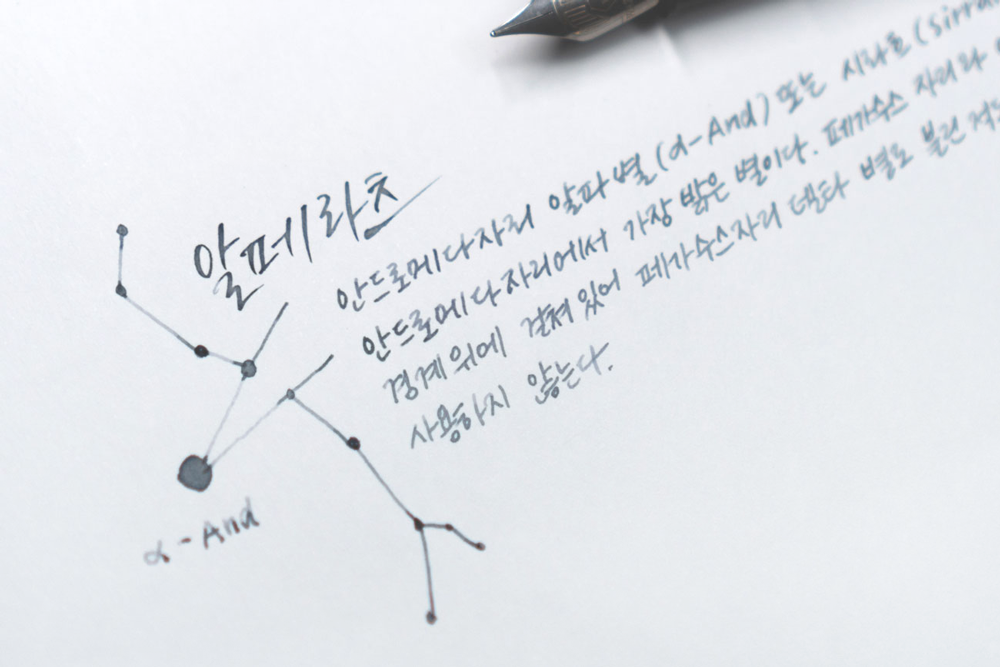 알페라츠
안드로메다자리 알파별(α-And) 또는 시라흐(Sirra
안드로메다자리에서 가장 밝은 별이다. 페가수스 자리와
경계위에 걸쳐있어 페가수스자리 델타 별로 불린 적
사용하지 않는다.
α-And